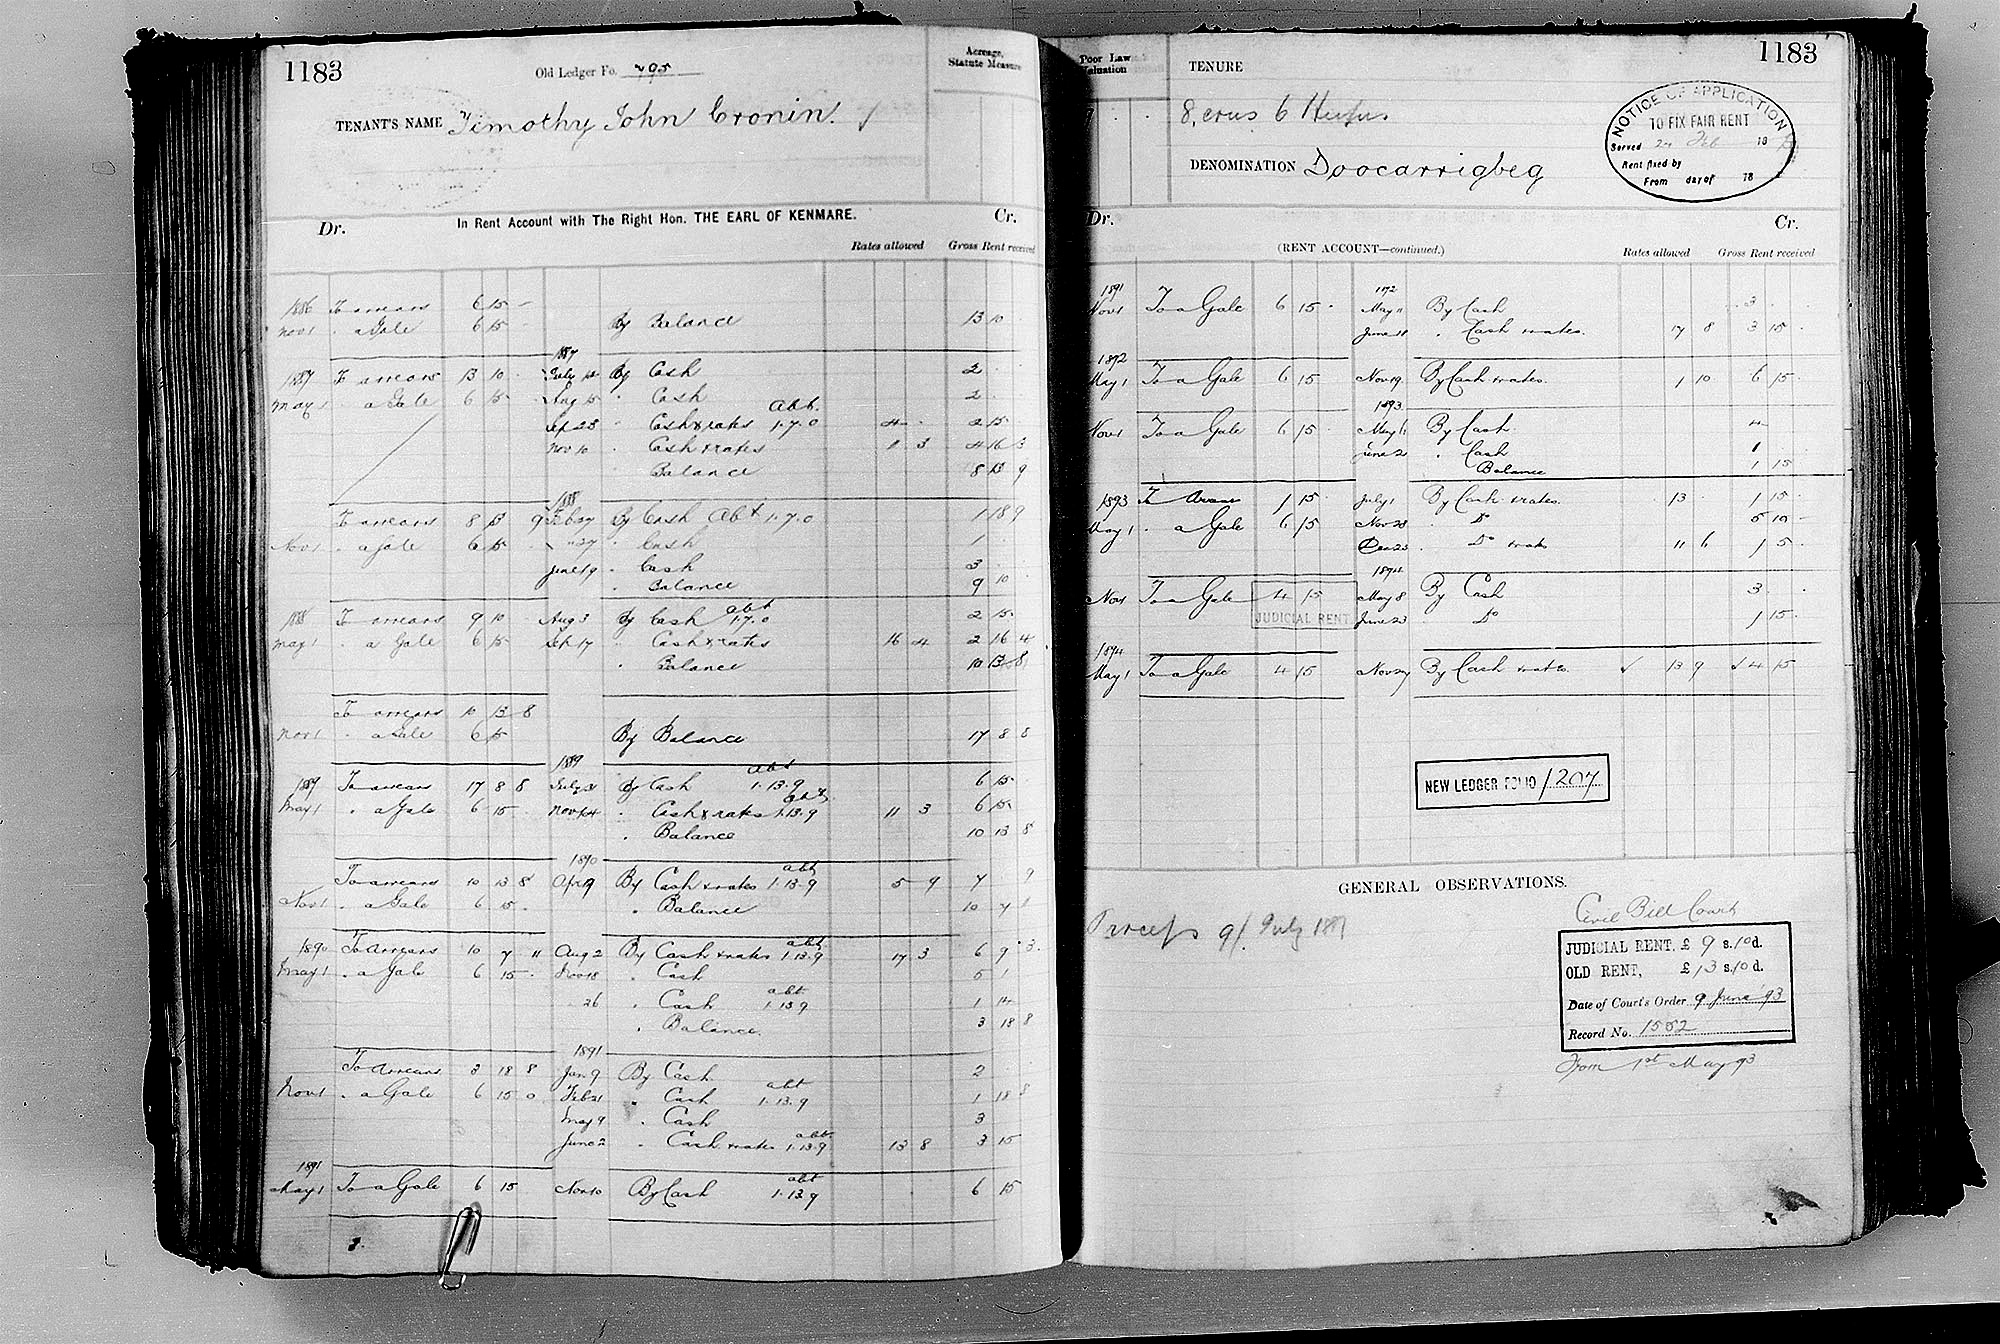 1183
Old Ledger Fo. 795
Acreage, Statute Measure
TENANT'S NAME Timothy John Cronin.
Dr. In Rent Account with The Right Hon. THE EARL OF KENMARE. Cr.
Rates allowed Gross Rent received
1886 To arrears 6 15 -
Nov 1 " a Gale 6 15 - By Balance 13 10 -
1887
1887 To arrears 13 10 - July 12 By Cash 2
May 1 " a Gale 6 15 - Aug 15 " Cash 2
Sep 23 " Cash & rates Abt. 1.7.0 4 - 2 15
Nov 10 " Cash & rates 11 3 4 16 3
Balance 8 13 9
1888
To arrears 8 13 9 Feb 27 By Cash Abt 1.7.0 1 18 9
Nov 1 " a Gale 6 15 " 27 " Cash 1
June 19 " Cash 3
" Balance 9 10
1888 To arrears 9 10 Aug 3 By Cash abt 1.7.0 2 15
May 1 " a Gale 6 15 Sep 17 " Cash & rates 16 4 2 16 4
" Balance 10 13 8
To arrears 10 13 8
Nov 1 " a Gale 6 15 By Balance 17 8 8
1889
1889 To arrears 17 8 8 July 31 By Cash abt 1.13.9 6 15
May 1 " a Gale 6 15 Nov 14 " Cash & rates abt 1.13.9 11 3 6 15
" Balance 10 13 8
1890
To arrears 10 13 8 Apr 19 By Cash & rates abt 1.13.9 5 9 7 9
Nov 1 " a Gale 6 15 " Balance 10 7 11
1890 To arrears 10 7 11 Aug 2 By Cash & rates abt 1.13.9 17 3 6 9 3
May 1 " a Gale 6 15 Nov 18 " Cash 5 1
26 " Cash abt 1.13.9 1 14
" Balance. 3 18 8
1891
To arrears 3 18 8 Jan 9 By Cash 2
Nov 1 " a Gale 6 15 0 Feb 21 " Cash abt 1.13.9 1 18 8
May 9 " Cash 3
June 2 " Cash & rates abt 1.13.9 13 8 3 15
1891
May 1 To a Gale 6 15 Nov 10 By Cash abt 1.13.9 6 15
1183
Poor Law Valuation
TENURE
DENOMINATION Doocarrigbeg
NOTICE OF APPLICATION
TO FIX FAIR RENT
Served 24 Feb 18
Rent fixed by
From day of 18
Dr. Cr.
(RENT ACCOUNT—continued.) Rates allowed Gross Rent received
1891 1892
Nov 1 To a Gale 6 15 - May 11 By Cash 3
June 18 " Cash & rates. 17 8 3 15
1892
May 1 To a Gale 6 15 Nov 19 By Cash & rates. 1 10 6 15
1893
Nov 1 To a Gale 6 15 May 6 By Cash 4
June 2 " Cash 1
Balance 1 15
1893 To Arrears 1 15 July 1 By Cash & rates. 13 1 15
May 1 " a Gale 6 15 Nov 28 " Do 5 10 -
Dec 23 " Do & rates 11 6 1 5
1894
Nov 1 To a Gale 4 15 May 8 By Cash 3
JUDICIAL RENT June 23 " Do 1 15
1894
May 1 To a Gale 4 15 Nov 27 By Cash & rates. 13 9 4 15
NEW LEDGER FOLIO 1207
GENERAL OBSERVATIONS.
Process 9/. July 1887
Civil Bill Court
JUDICIAL RENT, £ 9 s. 10 d.
OLD RENT, £ 13 s. 10 d.
Date of Court's Order 9 June '93
Record No. 1552
From 1st May 93